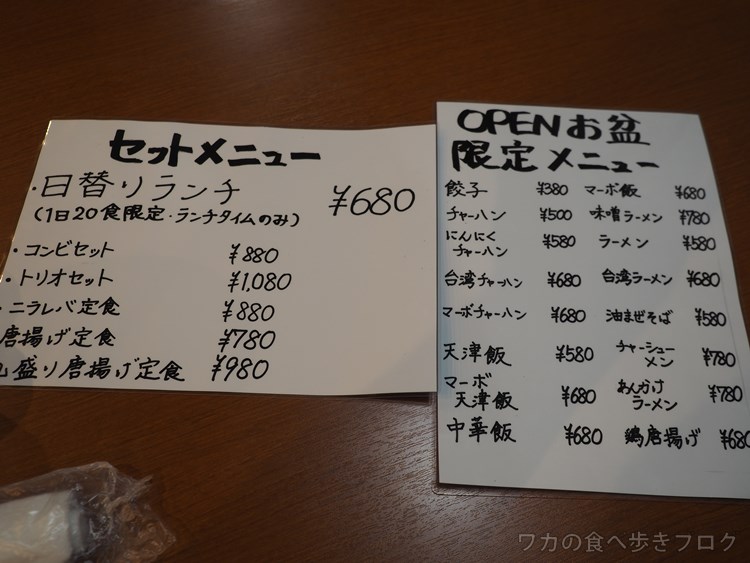 セットメニュー
・日替りランチ ¥680
(1日20食限定・ランチタイムのみ)
・コンビセット ¥880
・トリオセット ¥1,080
・ニラレバ定食 ¥880
唐揚げ定食 ¥780
盛り唐揚げ定食 ¥980
OPENお盆
限定メニュー
餃子 ¥380 マーボ飯 ¥680
チャーハン ¥500 味噌ラーメン ¥780
にんにく
チャーハン ¥580 ラーメン ¥580
台湾チャーハン ¥680 台湾ラーメン ¥680
マーボチャーハン ¥680 油まぜそば ¥580
天津飯 ¥580 チャーシュー
メン ¥780
マーボ
天津飯 ¥680 あんかけ
ラーメン ¥780
中華飯 ¥680 鶏唐揚げ ¥680
ワカの食べ歩きブログ